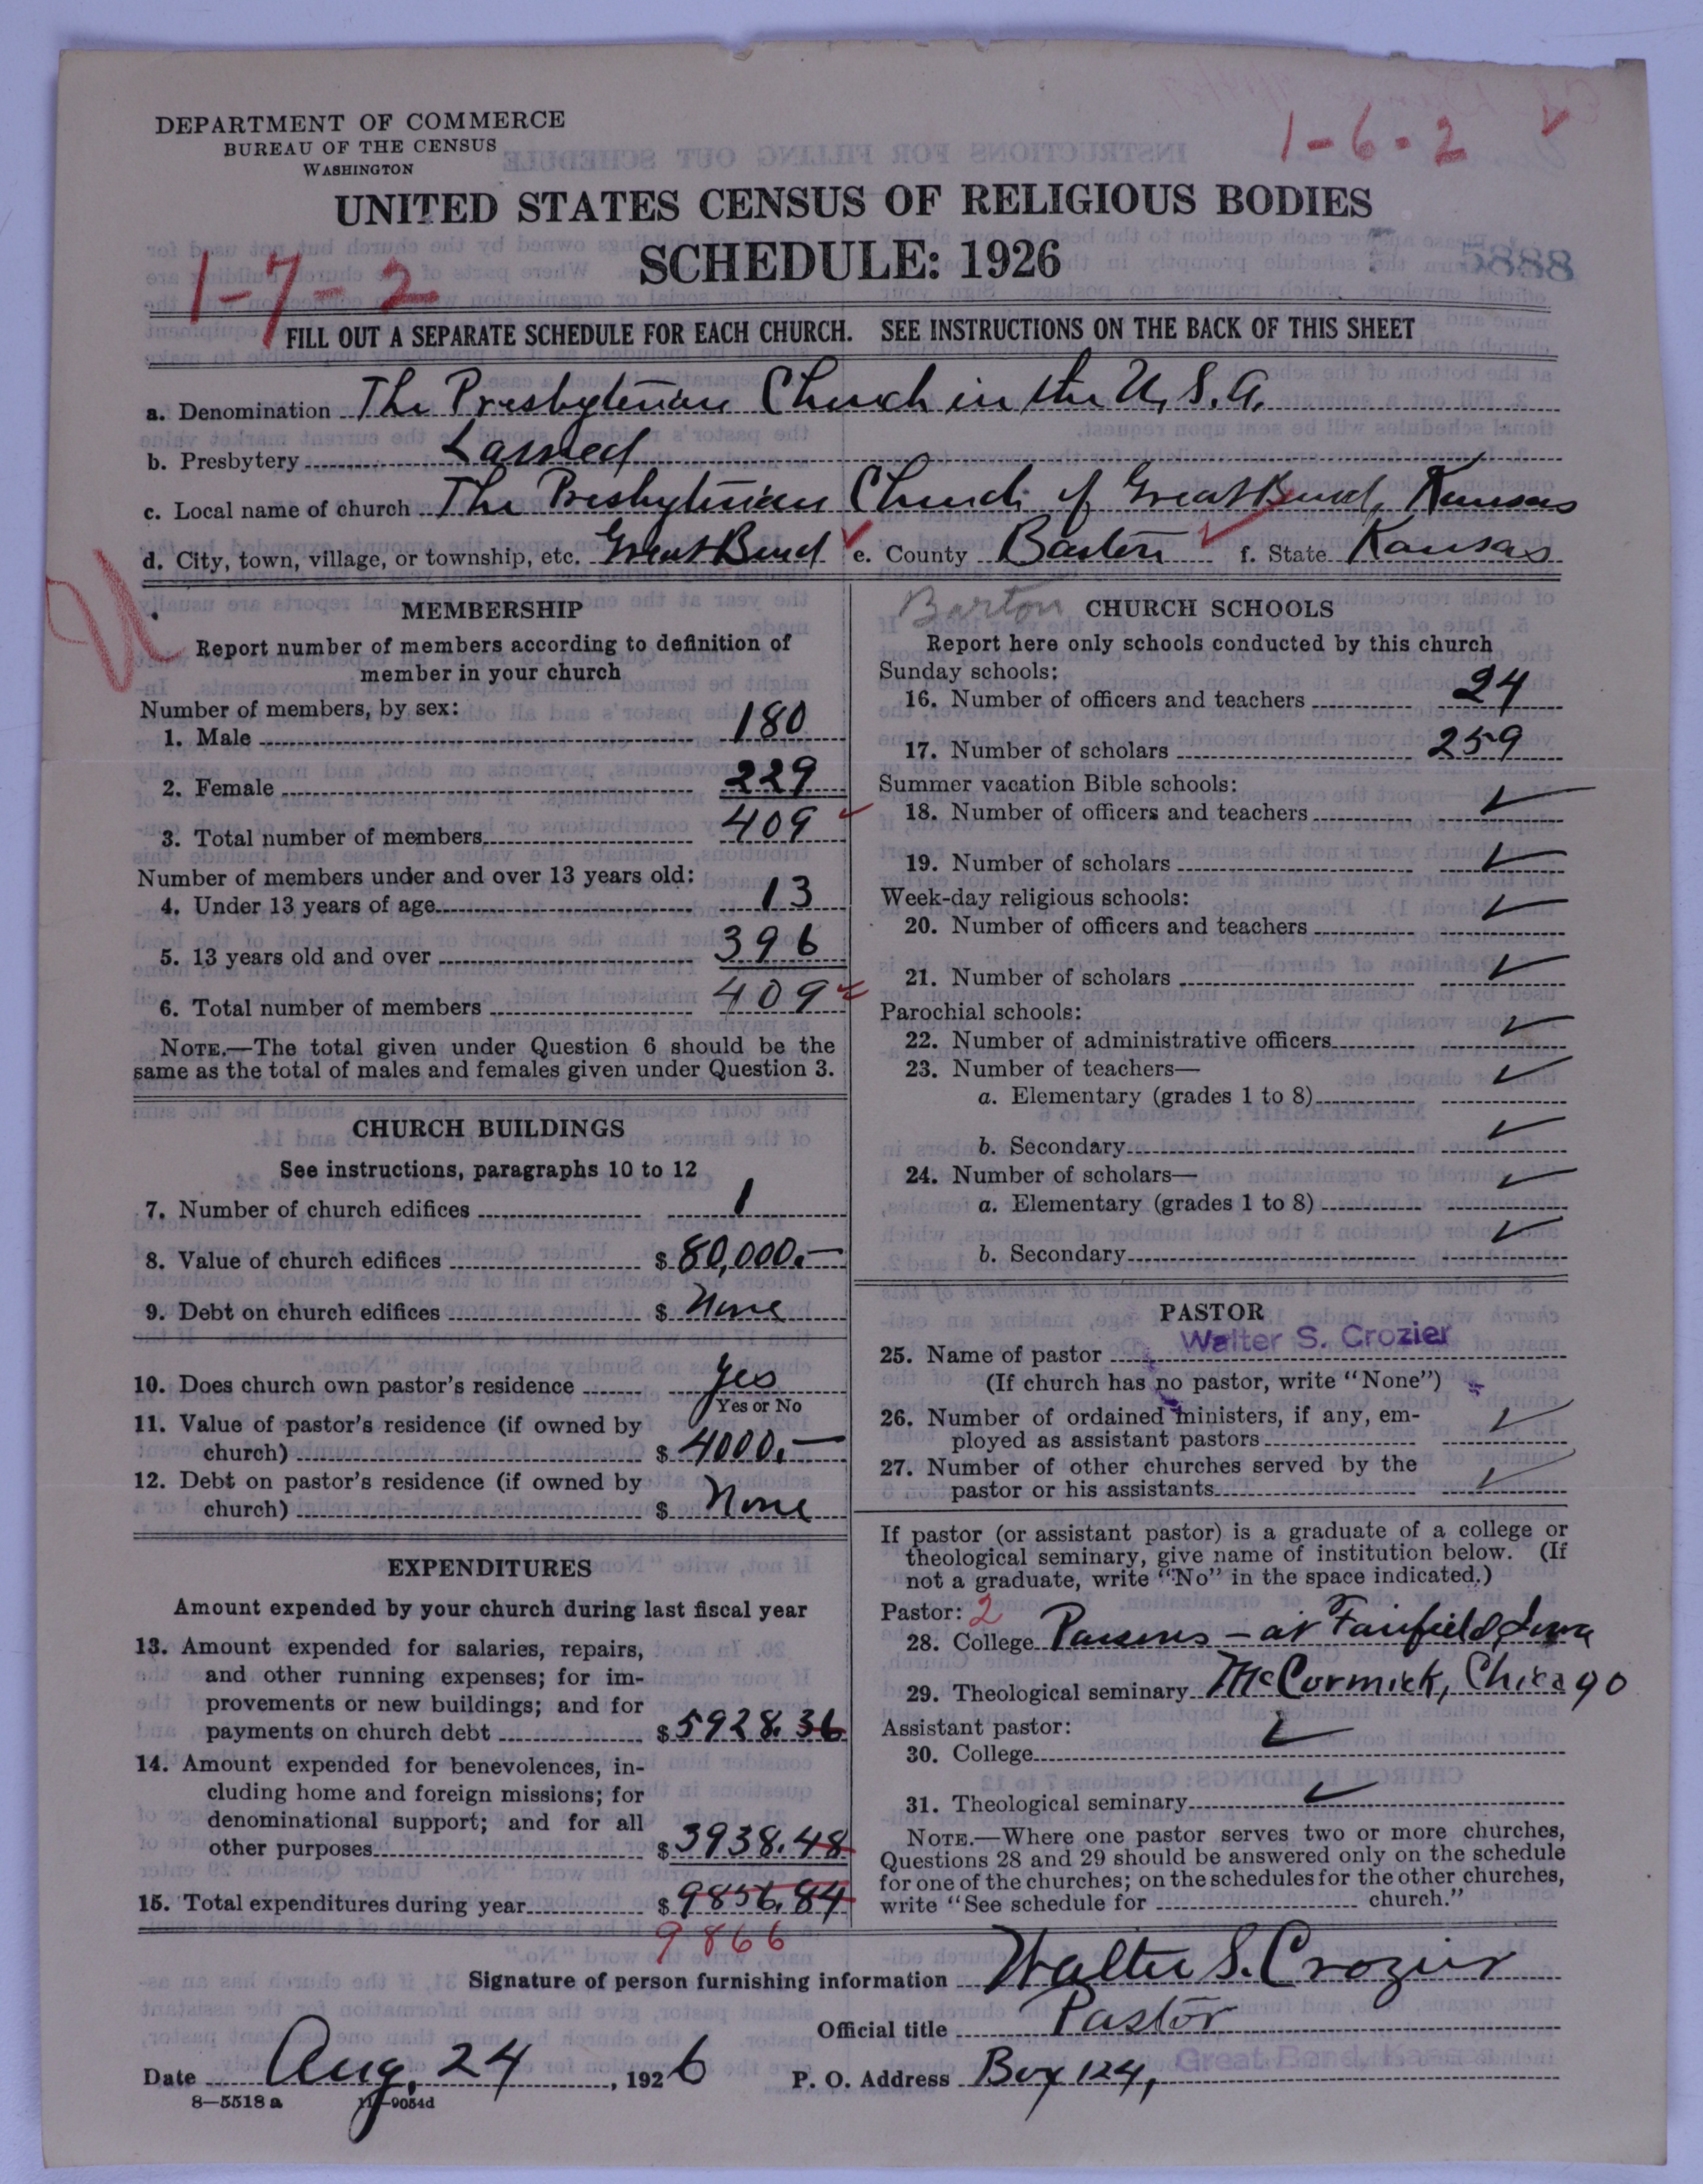 DEPARTMENT OF COMMERCE
BUREAU OF THE CENSUS
WASHINGTON
1-6-2
UNITED STATES CENSUS OF RELIGIOUS BODIES
SCHEDULE: 1926
5888
1-7-2
FILL OUT A SEPARATE SCHEDULE FOR EACH CHURCH. SEE INSTRUCTIONS ON THE BACK OF THIS SHEET
a. Denomination The Presbyterian Church in the U. S. A.
b. Presbytery Larned
c. Local name of church The Presbyterian Church of Great Bend, Kansas
d. City, town, village, or township, etc. Great Bend e. County Barton f. State Kansas
MEMBERSHIP
Report number of members according to definition of
member in your church
Number of members, by sex:
1. Male 180
2. Female 229
3. Total number of members 409
Number of members under and over 13 years old:
4. Under 13 years of age 13
5. 13 years old and over 396
6. Total number of members 409
NOTE.—The total given under Question 6 should be the
same as the total of males and females given under Question 3.
CHURCH BUILDINGS
See instructions, paragraphs 10 to 12
7. Number of church edifices 1
8. Value of church edifices $ 80,000.—
9. Debt on church edifices $ None
10. Does church own pastor's residence Yes
Yes or No
11. Value of pastor's residence (if owned by
church) $ 4000.—
12. Debt on pastor's residence (if owned by
church) $ None
EXPENDITURES
Amount expended by your church during last fiscal year
13. Amount expended for salaries, repairs,
and other running expenses; for im-
provements or new buildings; and for
payments on church debt $ 5928.36
14. Amount expended for benevolences, in-
cluding home and foreign missions; for
denominational support; and for all
other purposes $ 3938.48
15. Total expenditures during year $ 9856.84
9866
Barton CHURCH SCHOOLS
Report here only schools conducted by this church
Sunday schools:
16. Number of officers and teachers 24
17. Number of scholars 259
Summer vacation Bible schools:
18. Number of officers and teachers ✓
19. Number of scholars ✓
Week-day religious schools:
20. Number of officers and teachers ✓
21. Number of scholars ✓
Parochial schools:
22. Number of administrative officers ✓
23. Number of teachers—
a. Elementary (grades 1 to 8) ✓
b. Secondary ✓
24. Number of scholars—
a. Elementary (grades 1 to 8) ✓
b. Secondary ✓
PASTOR
25. Name of pastor Walter S. Crozier
(If church has no pastor, write "None")
26. Number of ordained ministers, if any, em-
ployed as assistant pastors ✓
27. Number of other churches served by the
pastor or his assistants ✓
If pastor (or assistant pastor) is a graduate of a college or
theological seminary, give name of institution below. (If
not a graduate, write "No" in the space indicated.)
Pastor: 2
28. College Parsons - at Fairfield, Iowa
29. Theological seminary McCormick, Chicago
Assistant pastor:
30. College ✓
31. Theological seminary ✓
NOTE.—Where one pastor serves two or more churches,
Questions 28 and 29 should be answered only on the schedule
for one of the churches; on the schedules for the other churches,
write "See schedule for church."
Signature of person furnishing information Walter S. Crozier
Official title Pastor
Great Bend, Kansas
Date Aug. 24, 1926 P. O. Address Box 124,
8—5518 a 11—9054d